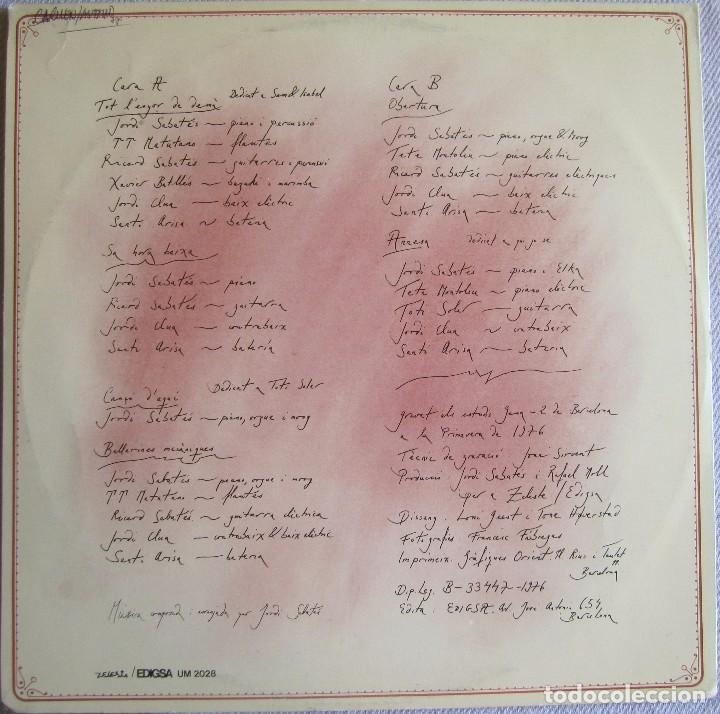 Cara A
Tot l'enyor de demà Dedicat a Samsó Isabel
Jordi Sabatés — piano i percussió
TT Matutano — flautes
Ricard Sabatés — guitarres i percussió
Xavier Batllés — i marimba
Jordi Clua — baix elèctric
Santi Arisa — bateria
Sa hora baixa
Jordi Sabatés — piano
Ricard Sabatés — guitarra
Jordi Clua — contrabaix
Santi Arisa — bateria
Cançó d'aquí Dedicat a Toti Soler
Jordi Sabatés — piano, orgue i moog
Ballarines mecàniques
Jordi Sabatés — piano, orgue i moog
TT Matutano — flautes
Ricard Sabatés — guitarra elèctrica
Jordi Clua — contrabaix & baix elèctric
Santi Arisa — bateria
Música composada i arranjada per Jordi Sabatés
Cara B
Obertura
Jordi Sabatés — piano, orgue & moog
Tete Montoliu — piano elèctric
Ricard Sabatés — guitarres elèctriques
Jordi Clua — baix elèctric
Santi Arisa — bateria
Dedicat a
Jordi Sabatés — piano i Elka
Tete Montoliu — piano elèctric
Toti Soler — guitarra
Jordi Clua — contrabaix
Santi Arisa — bateria
gravat els estudis Gema-2 de Barcelona
a la Primavera de 1976
Tècnic de gravació José Sirvent
Producció: Jordi Sabatés i Rafael Moll
per a Zeleste / Edigsa
Disseny: Loni Geest i Tone Høverstad
Fotografies Francesc Fàbregas
Imprimeix: Gràfiques Orient. M. Rius i Taulet
Barcelona
Dip. Leg. B-33447-1976
Edita: EDIGSA. Av. Jose Antonio 654,
Barcelona
zeleste / EDIGSA UM 2028
todocoleccion.net